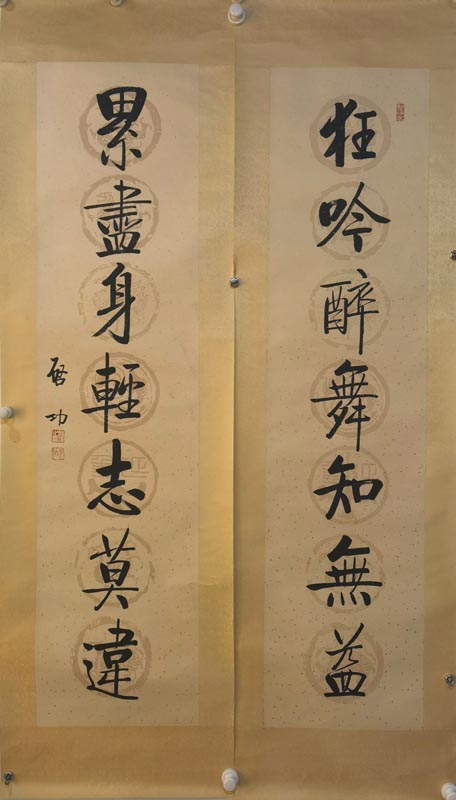 狂吟醉舞知無益
累盡身輕志莫違
啓功